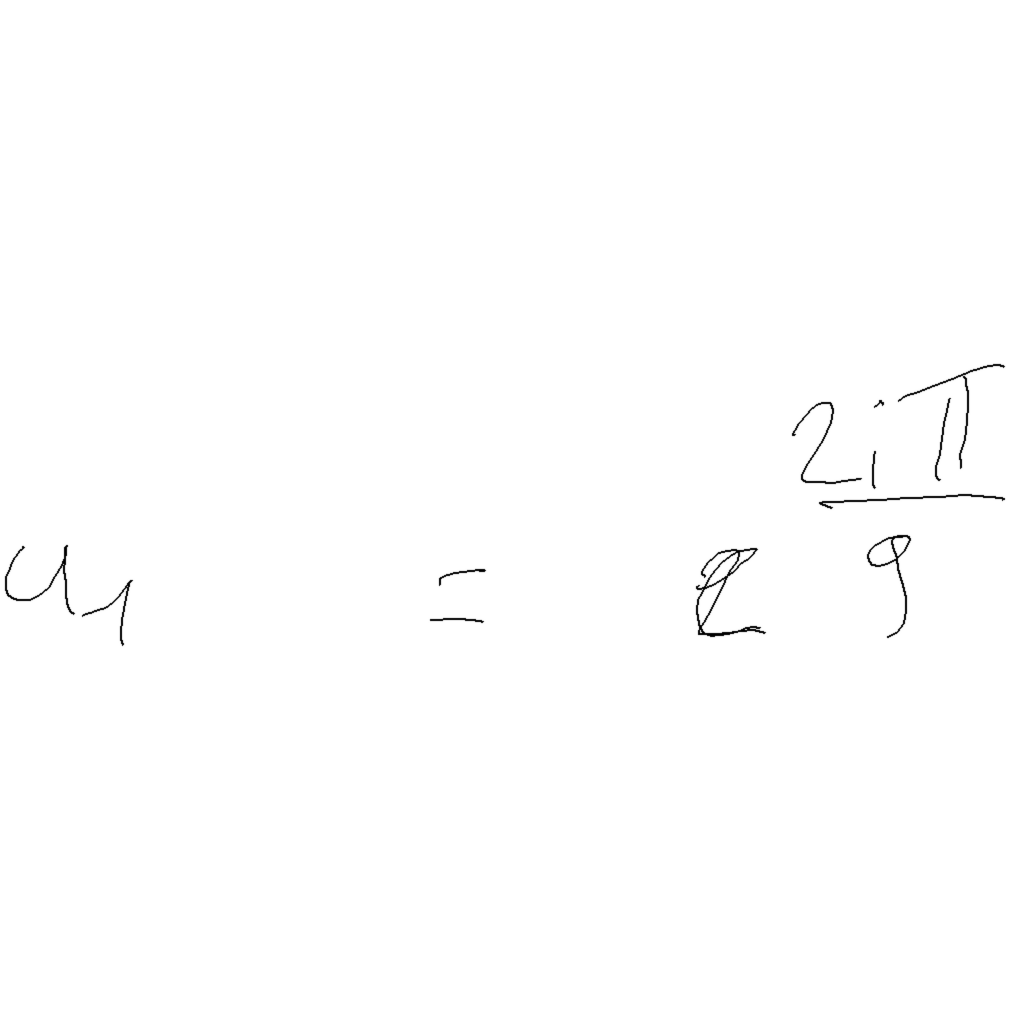 u₁ = e^{\frac{2iπ}{9}}